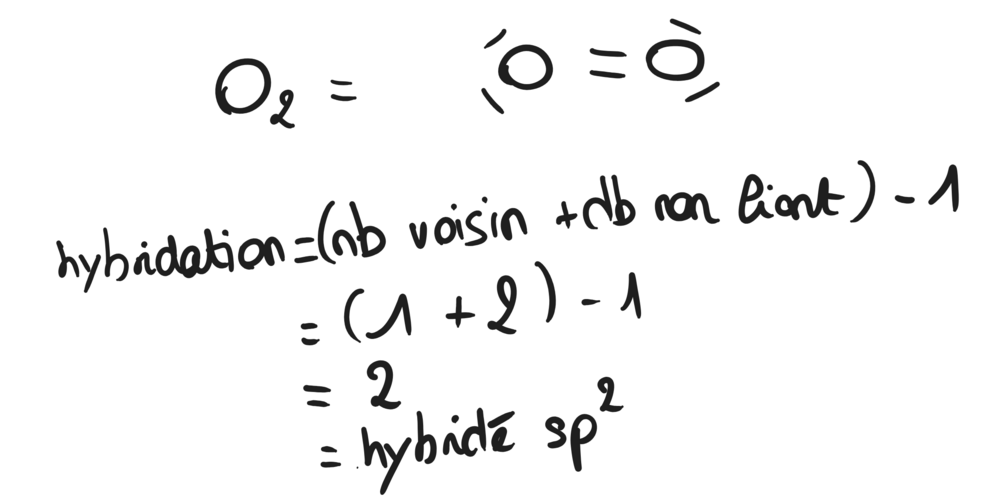 O₂ = O = O
hybridation = (nb voisin + db non liant) - 1
= (1 + 2) - 1
= 2
= hybridé sp²